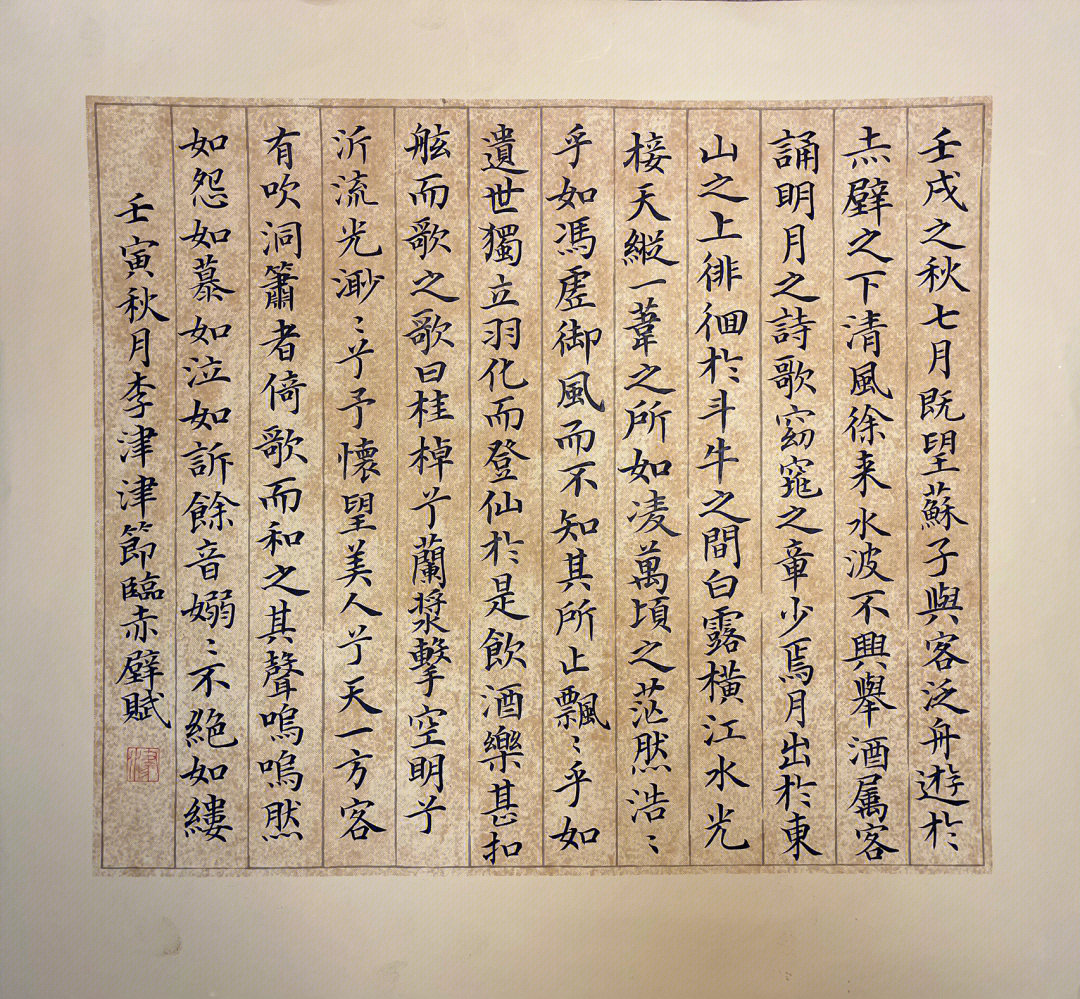 壬戌之秋七月既望蘇子與客泛舟遊於
赤壁之下清風徐来水波不興舉酒属客
誦明月之詩歌窈窕之章少焉月出於東
山之上徘徊於斗牛之間白露横江水光
接天縦一葦之所如凌萬頃之茫然浩〻
乎如馮虚御風而不知其所止飄〻乎如
遺世獨立羽化而登仙於是飲酒樂甚扣
舷而歌之歌曰桂棹兮蘭槳擊空明兮
泝流光渺〻兮予懷望美人兮天一方客
有吹洞簫者倚歌而和之其聲嗚嗚然
如怨如慕如泣如訴餘音嫋〻不絶如縷
壬寅秋月李津津節臨赤壁賦